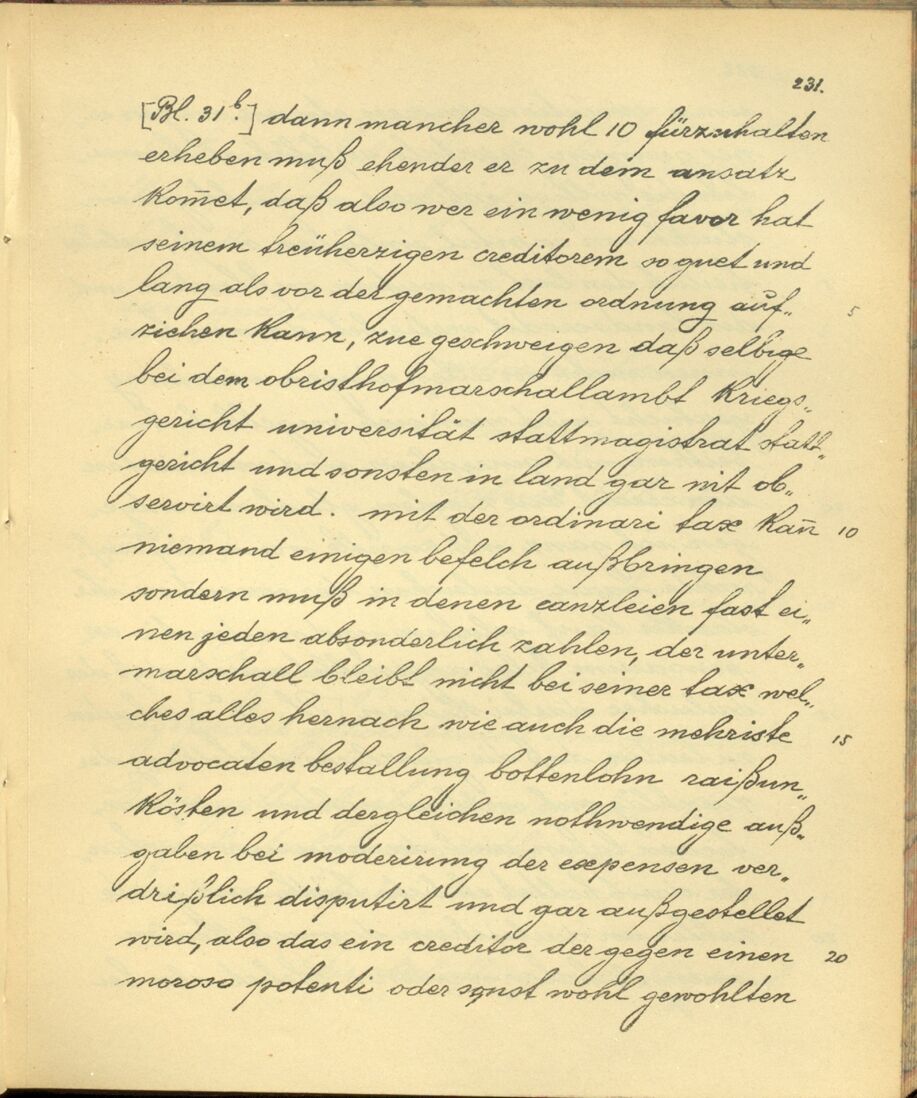 231.
[Bl. 31b.] dann mancher wohl 10 fürzuhalten
erheben muß ehender er zu dem ansatz
kom̄et, daß also wer ein wenig favor hat
seinem treüherzigen creditorem so guet und
lang als vor der gemachten ordnung auf„
5
ziehen kann, zue geschweigen daß selbige
bei dem obristhofmarschallambt kriegs„
gericht universität stattmagistrat statt„
gericht und sonsten in land gar nit ob„
servirt wird. mit der ordinari tax kan̄
10
niemand einigen befelch außbringen
sondern muß in denen canzleien fast ei„
nen jeden absonderlich zahlen, der unter„
marschall bleibt nicht bei seiner tax wel„
ches alles hernach wie auch die mehriste
15
advocaten bestallung bottenlohn raißun„
kösten und dergleichen nothwendige auß„
gaben bei moderirung der expensen ver„
drißlich disputirt und gar außgestellet
wird, also das ein creditor der gegen einen
20
moroso potenti oder sonst wohl gewohlten